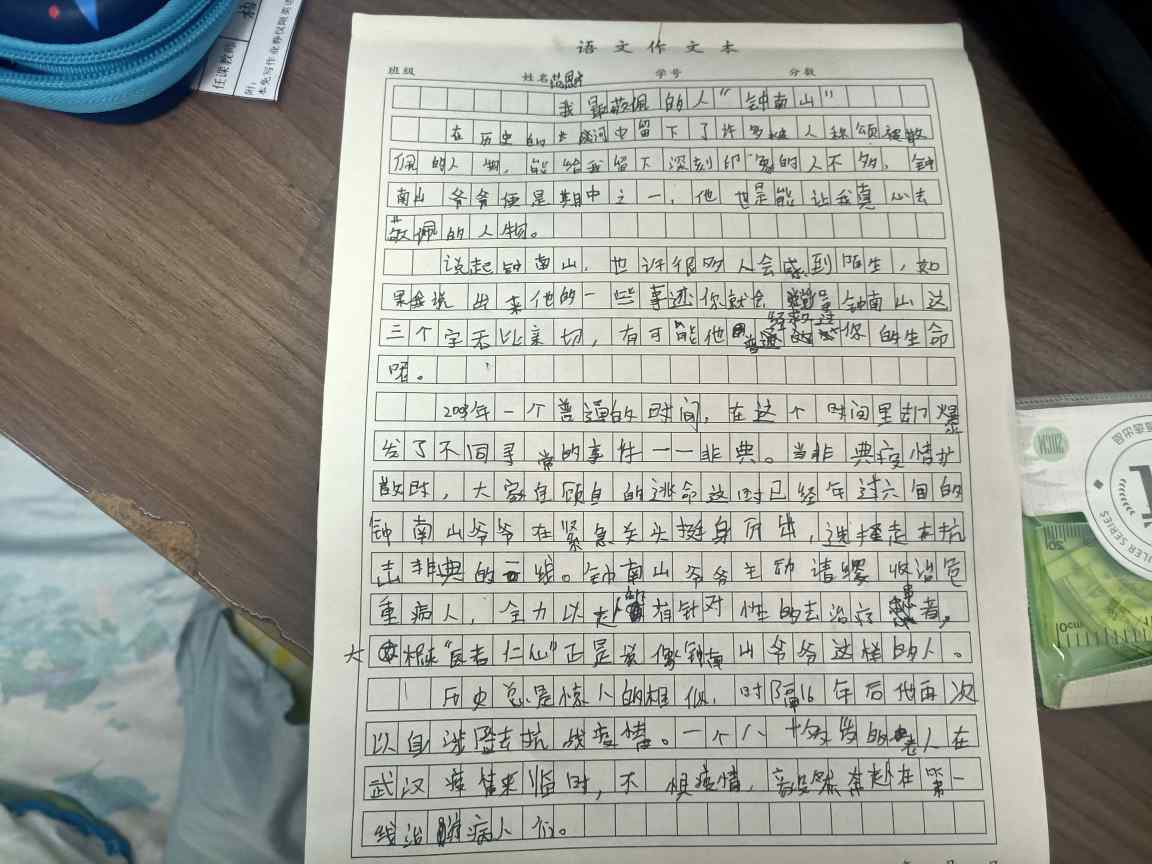 任课教师
附:
语文作文本
班级 姓名 学号 分数
我最敬佩的人“钟南山”
在历史的长河中留下了许多被人称颂被敬
佩的人物,能给我留下深刻印象的人不多,钟
南山爷爷便是期中之一,他也是能让我真心去
敬佩的人物。
说起钟南山,也许很多人会感到陌生,如
果说出来他的一些事迹你就会觉得钟南山这
三个字无比亲切,有可能他经拯救过你的生命
呢。
2003年一个普通的时间,在这个时间里却爆
发了不同寻常的事件——非典。当非典疫情扩
散时,大家自顾自的逃命这时已经年过六旬的
钟南山爷爷在紧急关头挺身而出,选择走在抗
击非典的一线。钟南山爷爷主动请缨收治危
重病人,全力以赴的有针对性的去治疗患者,
大概“医者仁心”正是说像钟南山爷爷这样的人。
历史总是惊人的相似,时隔16年后他再次
以自涉险去抗战疫情。一个八十多岁的老人在
武汉疫情来临时,不惧疫情,毅然奔赴在第一
线治病人们。
RULER SERIES
10cm